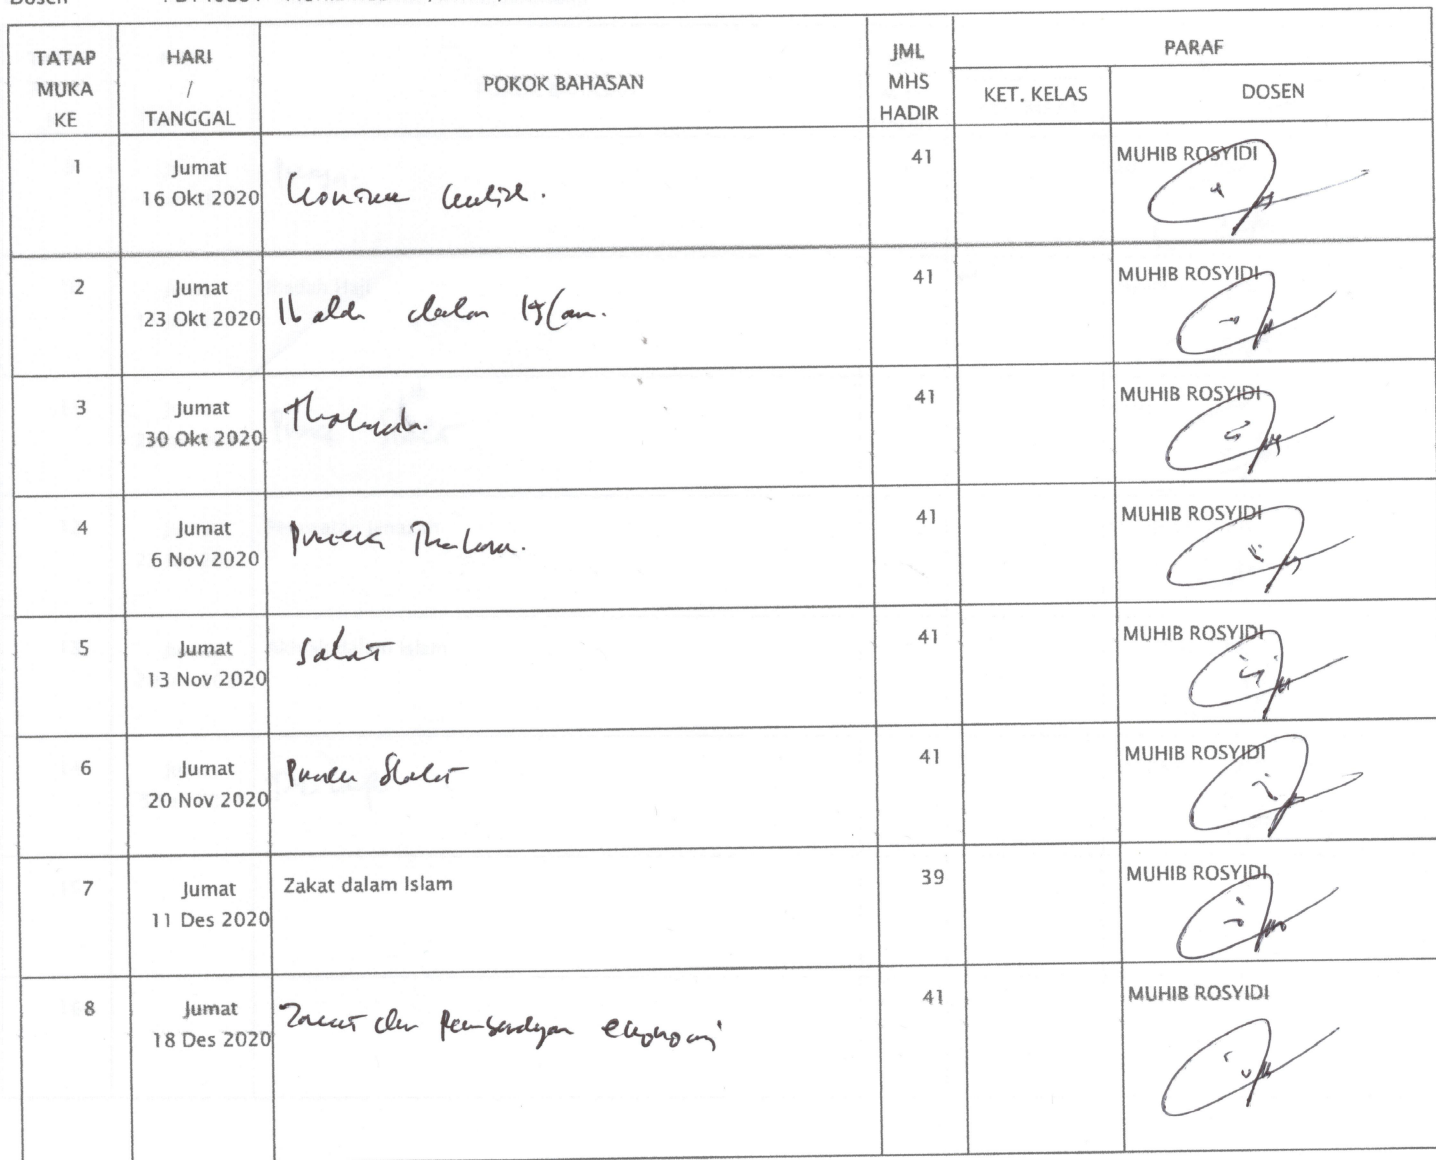 Dosen
TATAP MUKA KE
HARI / TANGGAL
POKOK BAHASAN
JML MHS HADIR
PARAF
KET. KELAS
DOSEN
1
Jumat
16 Okt 2020
41
MUHIB ROSYIDI
2
Jumat
23 Okt 2020
dalam Islam.
41
MUHIB ROSYIDI
3
Jumat
30 Okt 2020
41
MUHIB ROSYIDI
4
Jumat
6 Nov 2020
41
MUHIB ROSYIDI
5
Jumat
13 Nov 2020
Salat
41
MUHIB ROSYIDI
6
Jumat
20 Nov 2020
Shalat
41
MUHIB ROSYIDI
7
Jumat
11 Des 2020
Zakat dalam Islam
39
MUHIB ROSYIDI
8
Jumat
18 Des 2020
Zakat dan Pemberdayaan ekonomi
41
MUHIB ROSYIDI